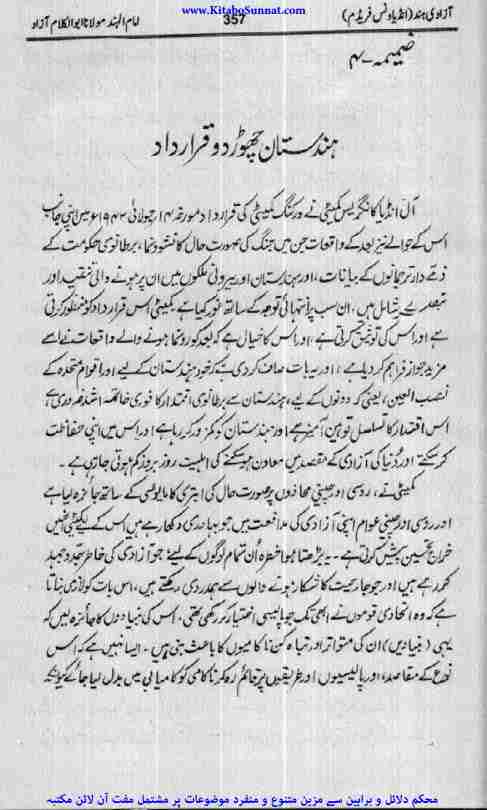 www.KitaboSunnat.com
آزادی ہند (انڈیا ونس فریڈم) 357 امام الہند مولانا ابوالکلام آزاد
ضمیمہ ۔ ۴
ہندستان چھوڑ دو قرارداد
آل انڈیا کانگریس کمیٹی نے ورکنگ کمیٹی کی قرارداد مورخہ ۱۴ جولائی ۱۹۴۲ء میں اپنی جانب
اس کے حوالے نیز بعد کے واقعات جن میں جنگ کی صورت حال کا نشوونما، برطانوی حکومت کے
ذمے دار ترجمانوں کے بیانات، اور ہندستان اور بیرونی ملکوں میں ان پر ہونے والی تنقید اور
تبصرے شامل ہیں، ان سب پر انتہائی توجہ کے ساتھ غور کیا ہے۔ کمیٹی اس قرارداد کو منظور کرتی
ہے اور اس کی توثیق کرتی ہے اور اس کا خیال ہے کہ بعد کو رونما ہونے والے واقعات نے اسے
مزید جواز فراہم کر دیا ہے، اور یہ بات صاف کر دی ہے کہ خود ہندستان کے لیے اور اقوام متحدہ کے
نصب العین، یعنی کہ دونوں کے لیے، ہندستان سے برطانوی اقتدار کا فوری خاتمہ اشد ضروری ہے
اس اقتدار کا تسلسل توہین آمیز ہے اور ہندستان کو کمزور کر رہا ہے اور اس میں اپنی حفاظت
کر سکنے اور دنیا کی آزادی کے مقصد میں معاون ہو سکنے کی اہلیت روز بروز کم ہوتی جا رہی ہے۔
کمیٹی نے، روسی اور چینی محاذوں پر صورت حال کی ابتری کا مایوسی کے ساتھ جائزہ لیا ہے
اور روسی اور چینی عوام اپنی آزادی کی مدافعت میں جو بہادری دکھا رہے ہیں اس کے لیے کمیٹی انھیں
خراج تحسین پیش کرتی ہے۔ یہ بڑھتا ہوا خطرہ ان تمام لوگوں کے لیے جو آزادی کی خاطر جدوجہد
کر رہے ہیں اور جو جارحیت کا شکار ہونے والوں سے ہمدردی رکھتے ہیں، اس بات کو لازمی بناتا
ہے کہ وہ اتحادی قوموں نے ابھی تک جو پالیسی اختیار کر رکھی تھی، اس کی بنیادوں کا جائزہ لیں کہ
یہی (بنیادیں) ان کی متواتر اور تباہ کن ناکامیوں کا باعث بنی ہیں۔ ایسا نہیں ہے کہ اس
نوع کے مقاصد، اور پالیسیوں اور طریقوں پر قائم رہ کر ناکامی کو کامیابی میں بدل لیا جائے کیونکہ
محکم دلائل و براہین سے مزین متنوع و منفرد موضوعات پر مشتمل مفت آن لائن مکتبہ